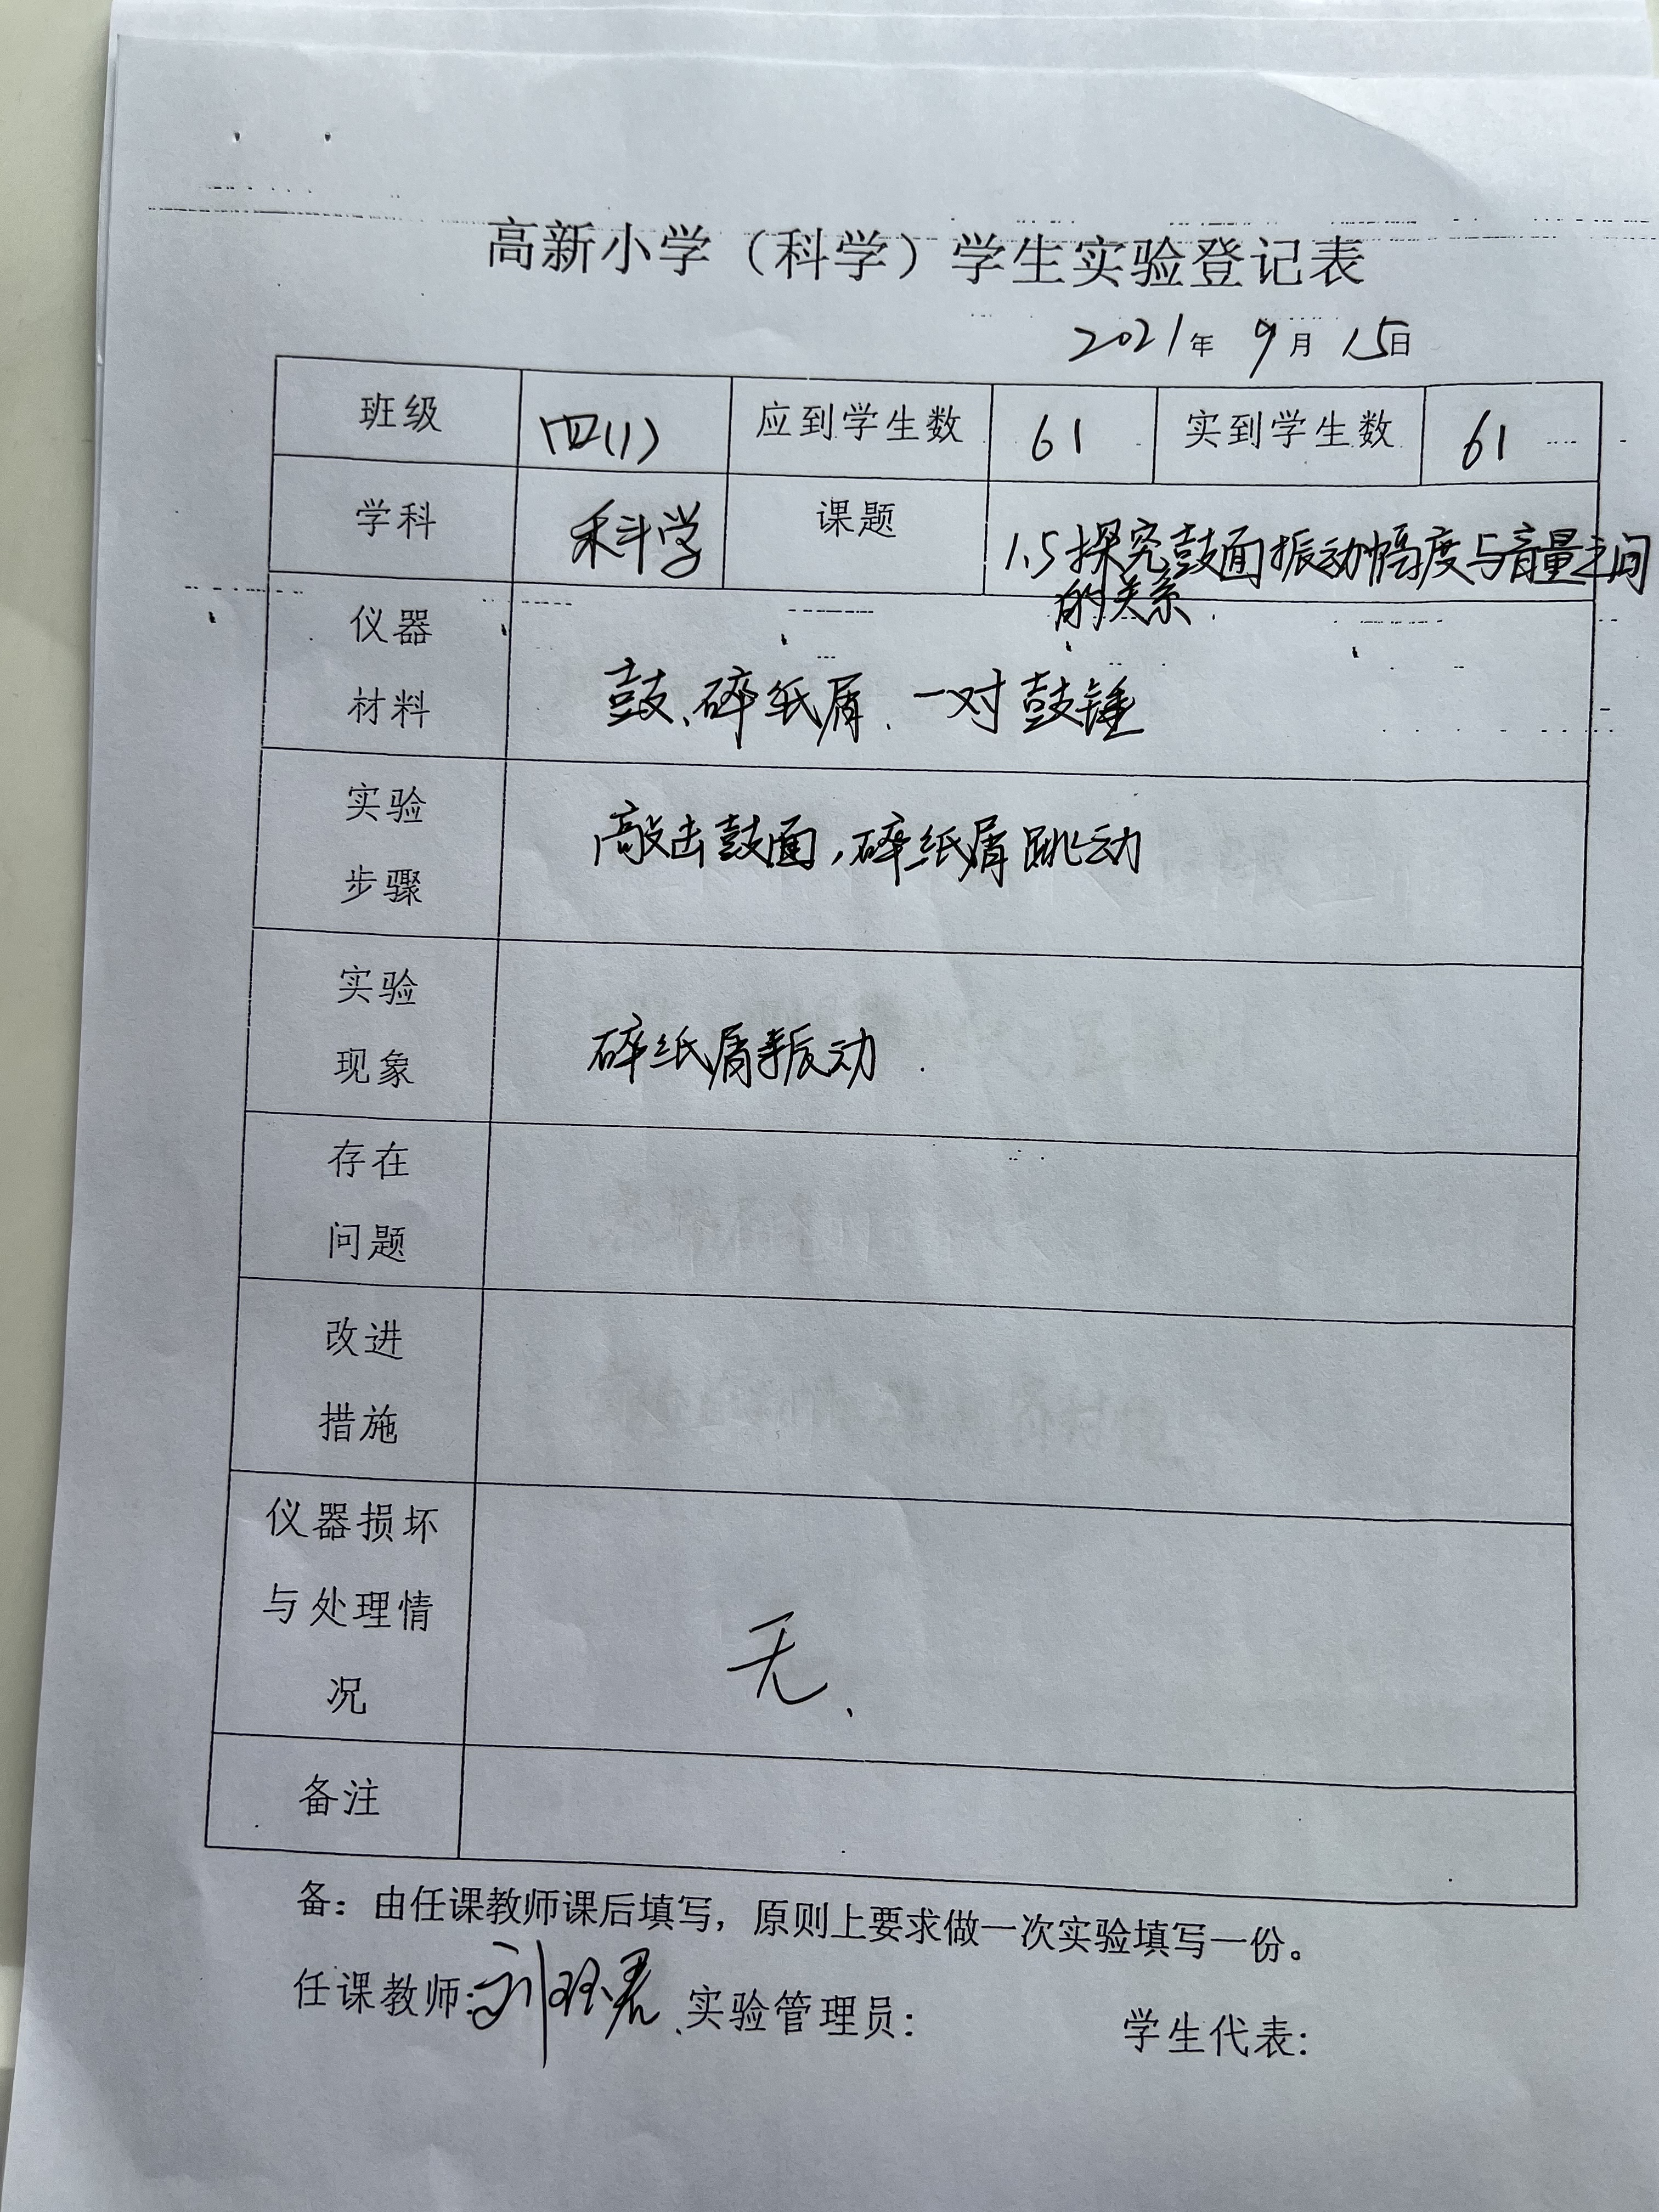 高新小学（科学）学生实验登记表
2021年 9月 15日
班级 四(1) 应到学生数 61 实到学生数 61
学科 科学 课题 1.5探究鼓面振动幅度与音量之间
的关系.
仪器
材料
鼓、碎纸屑、一对鼓锤
实验
步骤
敲击鼓面,碎纸屑跳动
实验
现象
碎纸屑振动.
存在
问题
改进
措施
仪器损坏
与处理情
况
无、
备注
备：由任课教师课后填写，原则上要求做一次实验填写一份。
任课教师: 实验管理员: 学生代表: